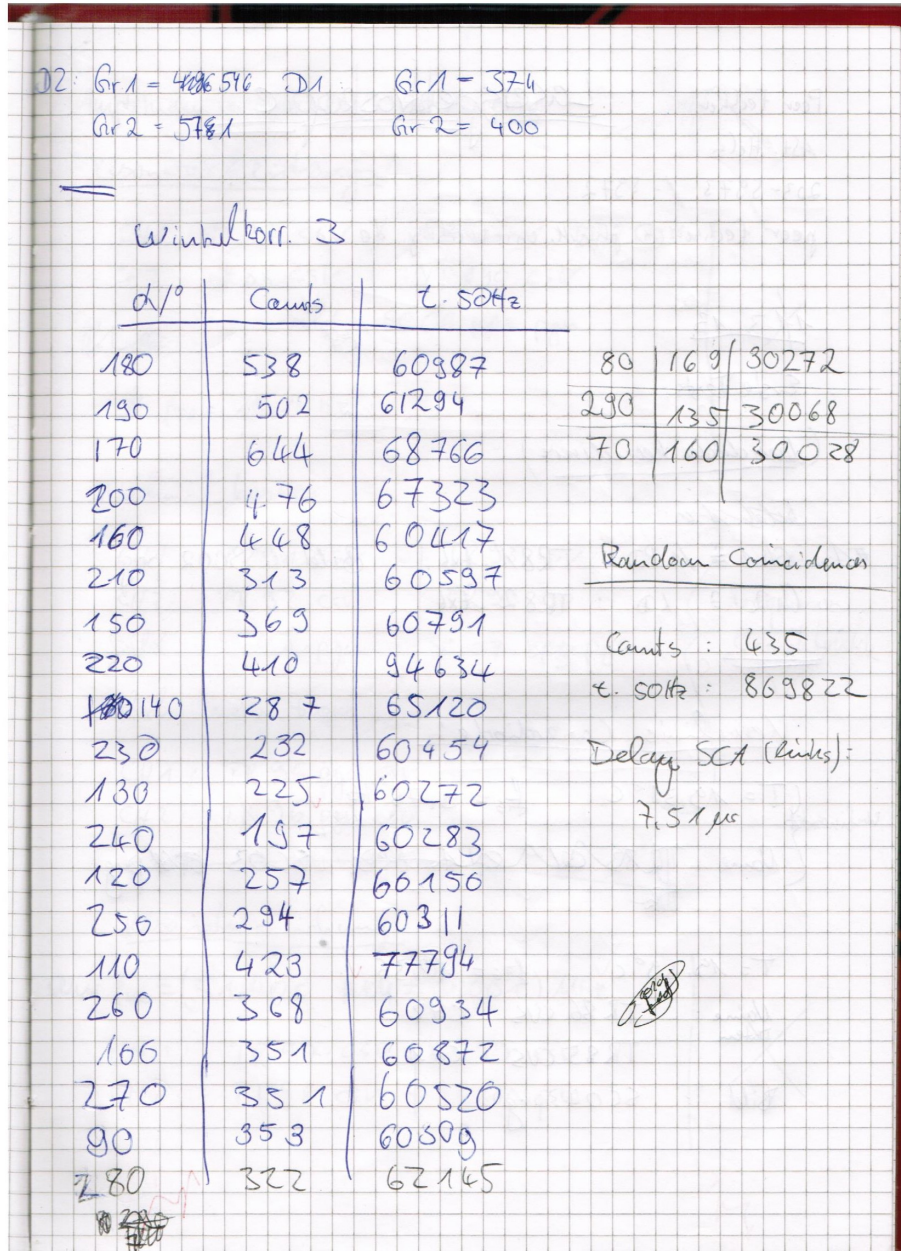 D2: Gr1 = 546 D1: Gr1 = 374
Gr2 = 5781 Gr2 = 400
Winkelkorr. 3
α/° | Counts | t. 50Hz
180 | 538 | 60987
190 | 502 | 61294
170 | 644 | 68766
200 | 476 | 67323
160 | 448 | 60417
210 | 313 | 60597
150 | 369 | 60791
220 | 410 | 94634
140 | 287 | 65120
230 | 232 | 60454
130 | 225 | 60272
240 | 197 | 60283
120 | 257 | 60150
250 | 294 | 60311
110 | 423 | 77794
260 | 368 | 60934
100 | 351 | 60872
270 | 351 | 60520
90 | 353 | 60509
280 | 322 | 62145
80 | 169 | 30272
290 | 135 | 30068
70 | 160 | 30028
Random Coincidences
Counts : 435
t. 50Hz : 869822
Delay SCA (links):
7,51 µs